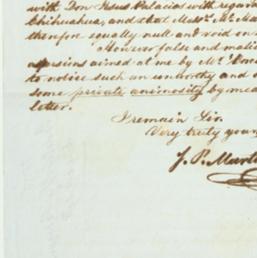 with Don Jesus Palacios with regard
Chihuahua, and that Messrs. Mc Ma
therefore equally null and void on
However false and mali
aimed at me by Mr.
to notice such an unworthy and
some private animosity by mea
letter.
I remain Sir.
Very truly your
J. P.